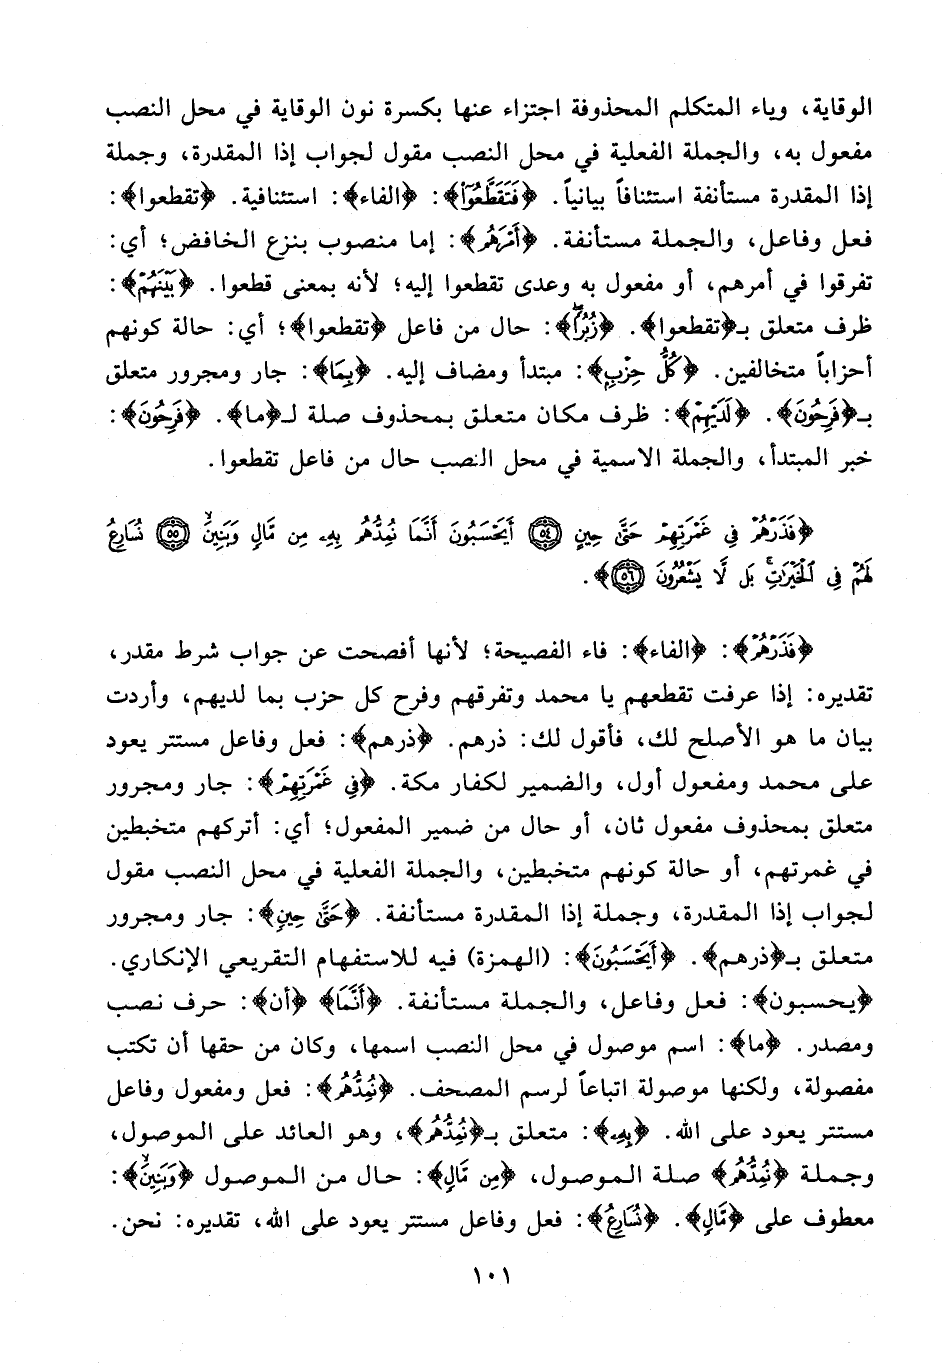 الوقاية، وياء المتكلم المحذوفة اجتزاء عنها بكسرة نون الوقاية في محل النصب
مفعول به، والجملة الفعلية في محل النصب مقول لجواب إذا المقدرة، وجملة
إذا المقدرة مستأنفة استئنافاً بيانياً. ﴿فَتَقَطَّعُوٓا۟﴾: ﴿الفاء﴾: استئنافية. ﴿تقطعوا﴾:
فعل وفاعل، والجملة مستأنفة. ﴿أَمْرَهُمْ﴾: إما منصوب بنزع الخافض؛ أي:
تفرقوا في أمرهم، أو مفعول به وعدى تقطعوا إليه؛ لأنه بمعنى قطعوا. ﴿بَيْنَهُمْ﴾:
ظرف متعلق بـ﴿تقطعوا﴾. ﴿زُبُرًاۖ﴾: حال من فاعل ﴿تقطعوا﴾؛ أي: حالة كونهم
أحزاباً متخالفين. ﴿كُلُّ حِزْبٍ﴾: مبتدأ ومضاف إليه. ﴿بِمَا﴾: جار ومجرور متعلق
بـ﴿فَرِحُونَ﴾. ﴿لَدَيْهِمْ﴾: ظرف مكان متعلق بمحذوف صلة لـ﴿ما﴾. ﴿فَرِحُونَ﴾:
خبر المبتدأ، والجملة الاسمية في محل النصب حال من فاعل تقطعوا.
﴿فَذَرْهُمْ فِى غَمْرَتِهِمْ حَتَّىٰ حِينٍ ۝٥٤ أَيَحْسَبُونَ أَنَّمَا نُمِدُّهُم بِهِۦ مِن مَّالٍ وَبَنِينَۙ ۝٥٥ نُسَارِعُ
لَهُمْ فِى ٱلْخَيْرَٰتِۚ بَل لَّا يَشْعُرُونَ ۝٥٦﴾.
﴿فَذَرْهُمْ﴾: ﴿الفاء﴾: فاء الفصيحة؛ لأنها أفصحت عن جواب شرط مقدر،
تقديره: إذا عرفت تقطعهم يا محمد وتفرقهم وفرح كل حزب بما لديهم، وأردت
بيان ما هو الأصلح لك، فأقول لك: ذرهم. ﴿ذرهم﴾: فعل وفاعل مستتر يعود
على محمد ومفعول أول، والضمير لكفار مكة. ﴿فِى غَمْرَتِهِمْ﴾: جار ومجرور
متعلق بمحذوف مفعول ثان، أو حال من ضمير المفعول؛ أي: أتركهم متخبطين
في غمرتهم، أو حالة كونهم متخبطين، والجملة الفعلية في محل النصب مقول
لجواب إذا المقدرة، وجملة إذا المقدرة مستأنفة. ﴿حَتَّىٰ حِينٍ﴾: جار ومجرور
متعلق بـ﴿ذرهم﴾. ﴿أَيَحْسَبُونَ﴾: (الهمزة) فيه للاستفهام التقريعي الإنكاري.
﴿يحسبون﴾: فعل وفاعل، والجملة مستأنفة. ﴿أَنَّمَا﴾ ﴿أن﴾: حرف نصب
ومصدر. ﴿ما﴾: اسم موصول في محل النصب اسمها، وكان من حقها أن تكتب
مفصولة، ولكنها موصولة اتباعاً لرسم المصحف. ﴿نُمِدُّهُم﴾: فعل ومفعول وفاعل
مستتر يعود على الله. ﴿بِهِۦ﴾: متعلق بـ﴿نُمِدُّهُم﴾، وهو العائد على الموصول،
وجملة ﴿نُمِدُّهُم﴾ صلة الموصول، ﴿مِن مَّالٍ﴾: حال من الموصول ﴿وَبَنِينَۙ﴾:
معطوف على ﴿مَّالٍ﴾. ﴿نُسَارِعُ﴾: فعل وفاعل مستتر يعود على الله، تقديره: نحن.
١٠١